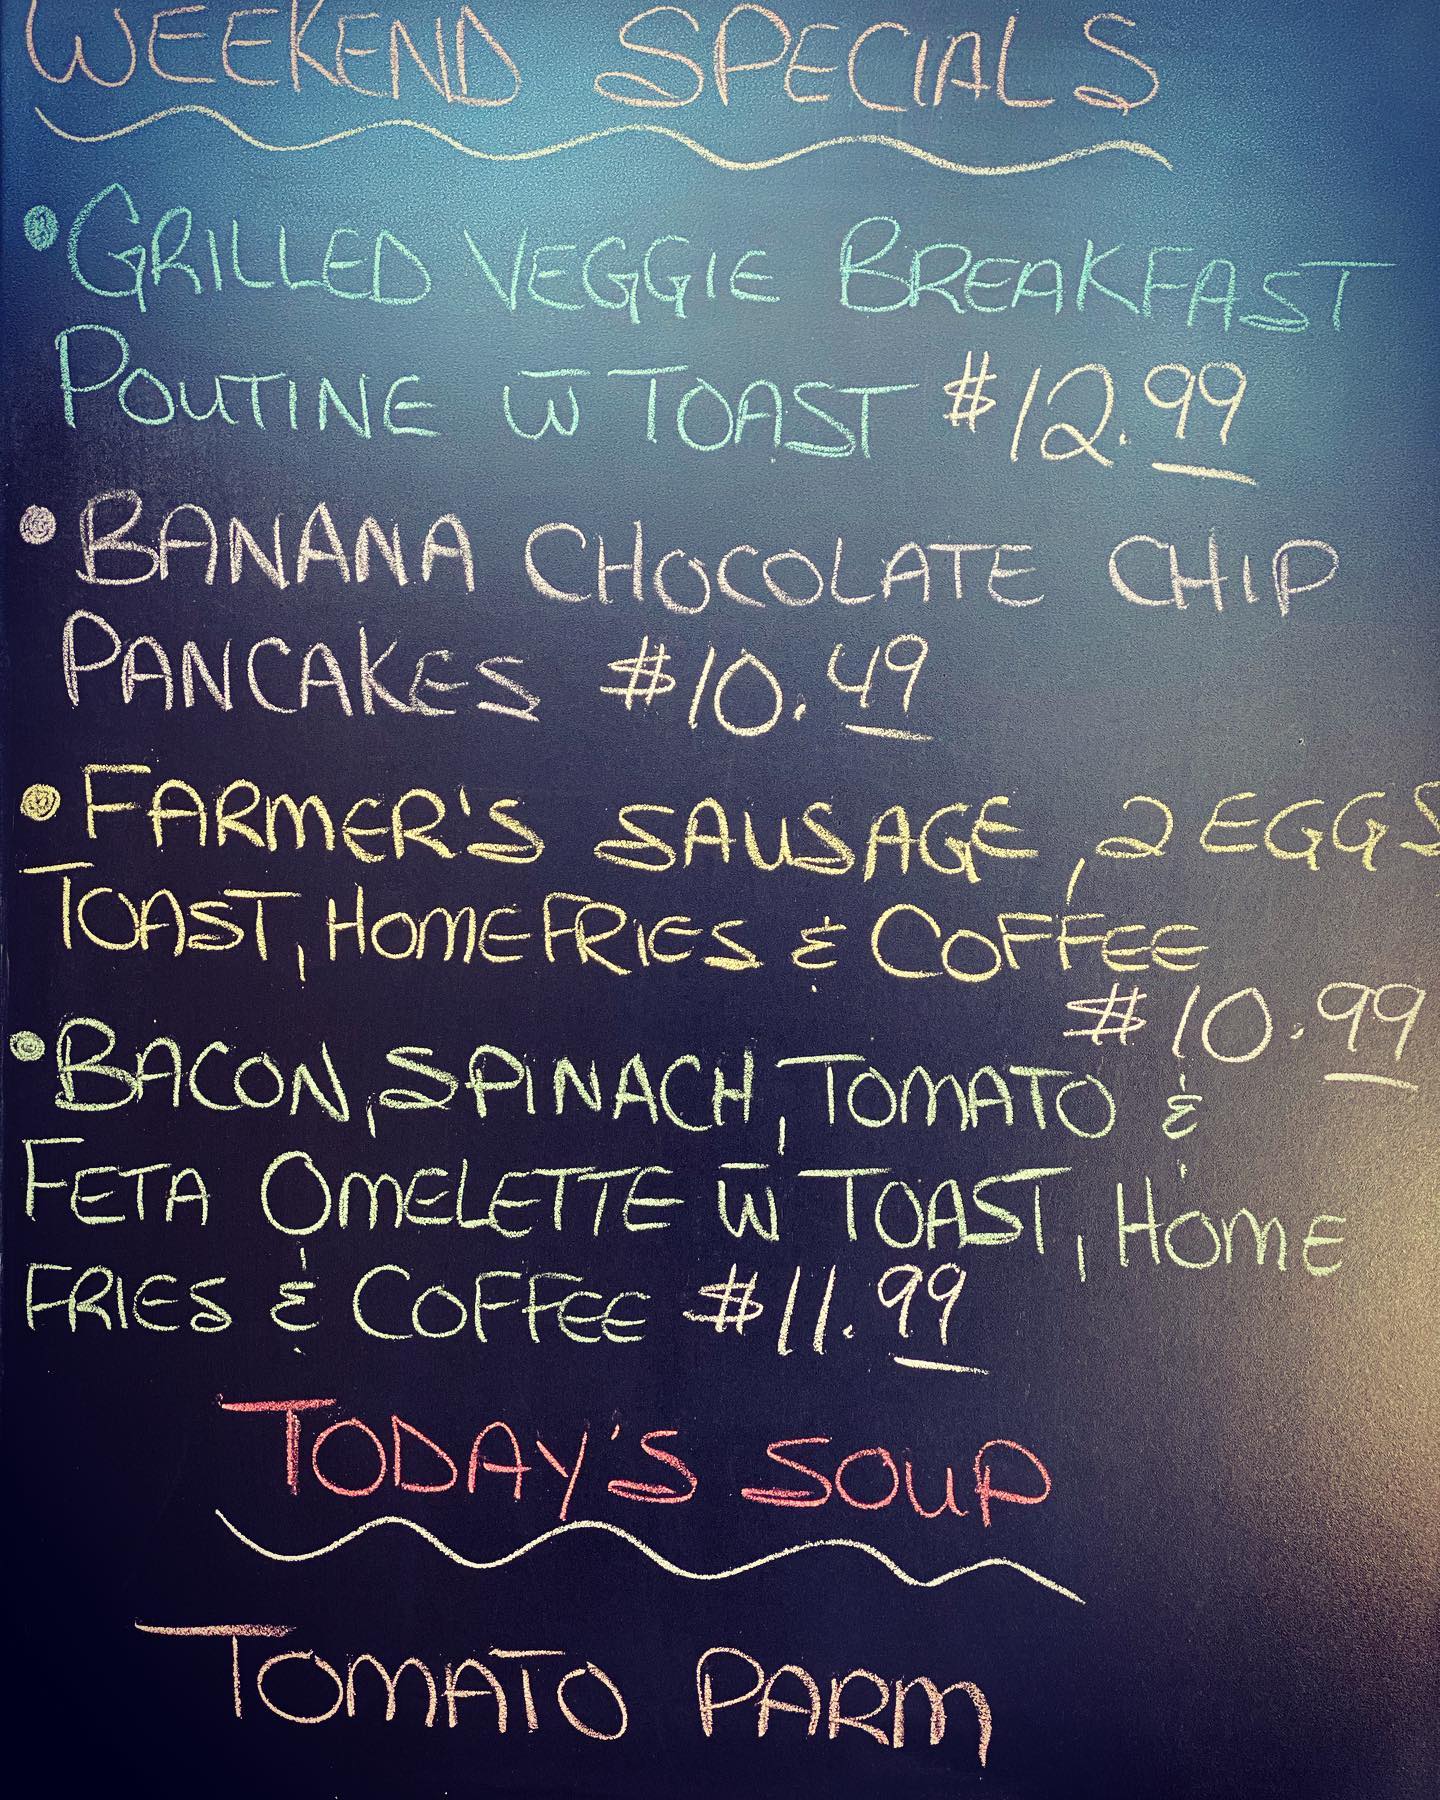 WEEKEND SPECIALS
• GRILLED VEGGIE BREAKFAST
POUTINE w̄ TOAST $12.99
• BANANA CHOCOLATE CHIP
PANCAKES $10.49
• FARMER'S SAUSAGE, 2 EGGS
TOAST, HOMEFRIES & COFFEE
$10.99
• BACON, SPINACH, TOMATO &
FETA OMELETTE w̄ TOAST, HOME
FRIES & COFFEE $11.99
TODAY'S SOUP
TOMATO PARM